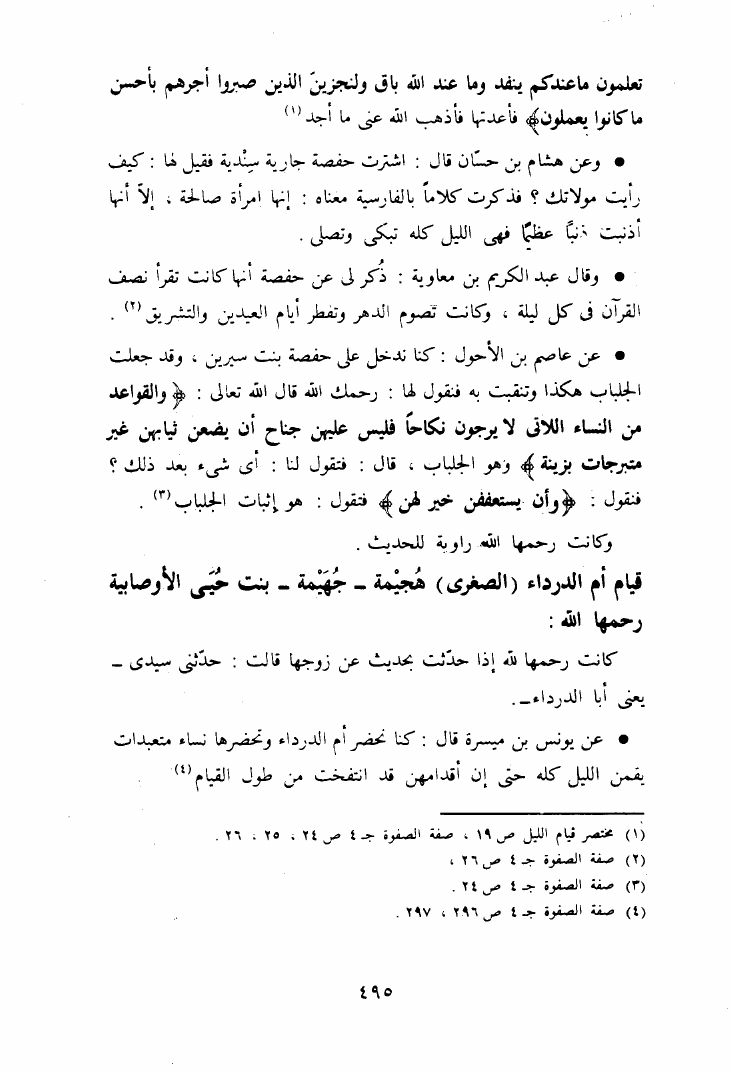 تعلمون ماعندكم ينفد وما عند الله باق ولنجزينّ الذين صبروا أجرهم بأحسن
ما كانوا يعملون﴾ فأعدتها فأذهب الله عنى ما أجد(١)
• وعن هشام بن حسّان قال : اشترت حفصة جارية سِنْدية فقيل لها : كيف
رأيت مولاتك ؟ فذكرت كلاماً بالفارسية معناه : إنها امرأة صالحة ، إلاّ أنها
أذنبت ذنباً عظيمًا فهى الليل كله تبكى وتصلى .
• وقال عبد الكريم بن معاوية : ذُكر لى عن حفصة أنها كانت تقرأ نصف
القرآن فى كل ليلة ، وكانت تصوم الدهر وتفطر أيام العيدين والتشريق(٢) .
• عن عاصم بن الأحول : كنا ندخل على حفصة بنت سيرين ، وقد جعلت
الجلباب هكذا وتنقبت به فنقول لها : رحمك الله قال الله تعالى : ﴿والقواعد
من النساء اللاتى لا يرجون نكاحاً فليس عليهن جناح أن يضعن ثيابهن غير
متبرجات بزينة﴾ وهو الجلباب ، قال : فتقول لنا : أى شىء بعد ذلك ؟
فنقول : ﴿وأن يستعففن خير لهن﴾ فتقول : هو إثبات الجلباب(٣) .
وكانت رحمها الله راوية للحديث .
قيام أم الدرداء (الصغرى) هُجيْمة ــ جُهَيْمة ــ بنت حُيَـى الأوصابية
رحمها الله :
كانت رحمها لله إذا حدّثت بحديث عن زوجها قالت : حدّثنى سيدى ــ
يعنى أبا الدرداء ــ.
• عن يونس بن ميسرة قال : كنا نحضر أم الدرداء ونحضرها نساء متعبدات
يقمن الليل كله حتى إن أقدامهن قد انتفخت من طول القيام(٤)
(١) مختصر قيام الليل ص ١٩ ، صفة الصفوة جـ ٤ ص ٢٤ ، ٢٥ ، ٢٦ .
(٢) صفة الصفوة جـ ٤ ص ٢٦ ،
(٣) صفة الصفوة جـ ٤ ص ٢٤ .
(٤) صفة الصفوة جـ ٤ ص ٢٩٦ ، ٢٩٧ .
٤٩٥